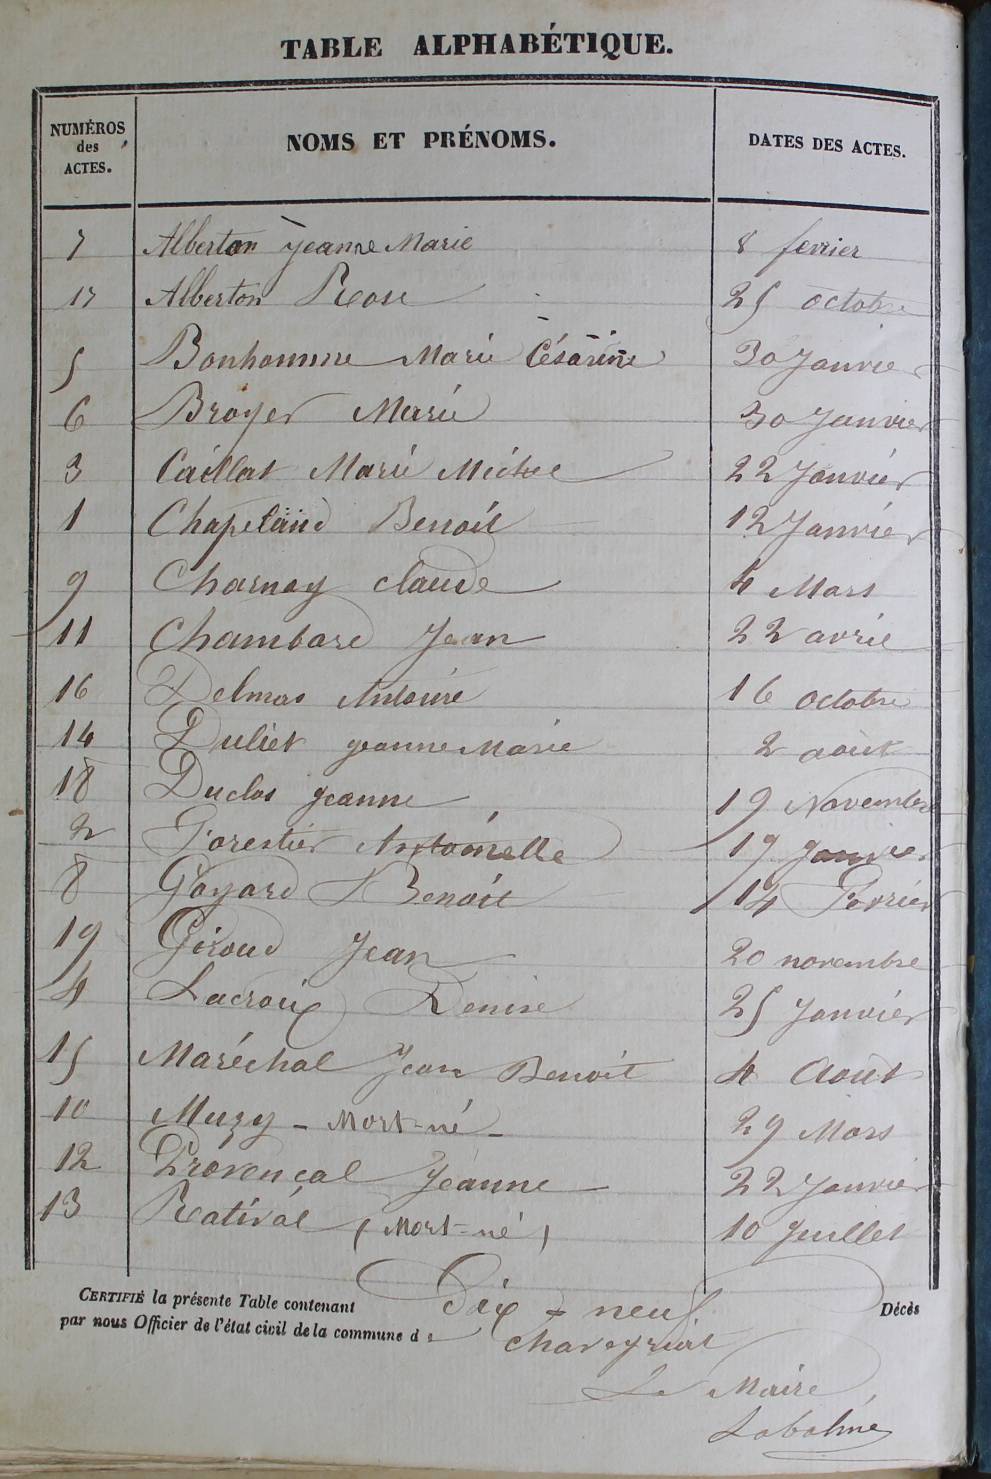 TABLE ALPHABÉTIQUE.
NUMÉROS des ACTES. NOMS ET PRÉNOMS. DATES DES ACTES.
7 Alberton Jeanne Marie 8 fevrier
17 Alberton Rose 25 octobre
5 Bonhomme Marie Césarine 30 Janvier
6 Broyer Marie 30 Janvier
3 Caillat Marie 22 Janvier
1 Chapeland Benoit 12 Janvier
9 Charnay claude 4 Mars
11 Chambard Jean 22 avril
16 Delmas Antoine 16 octobre
14 Duliet jeanne Marie 2 août
18 Duclos jeanne 19 Novembre
2 Forestier Antoinette 19 janvier
8 Goyard Benoit 14 Fevrier
19 Giroud Jean 20 novembre
4 Lacroix Denise 25 Janvier
15 Maréchal Jean Benoit 4 Août
10 Muzy - Mort-né - 29 Mars
12 Provençal Jeanne 22 Janvier
13 (Mort-né) 10 Juillet
CERTIFIÉ la présente Table contenant Dix-neuf Décès
par nous Officier de l'état civil de la commune de Chaveyriat
Le Maire